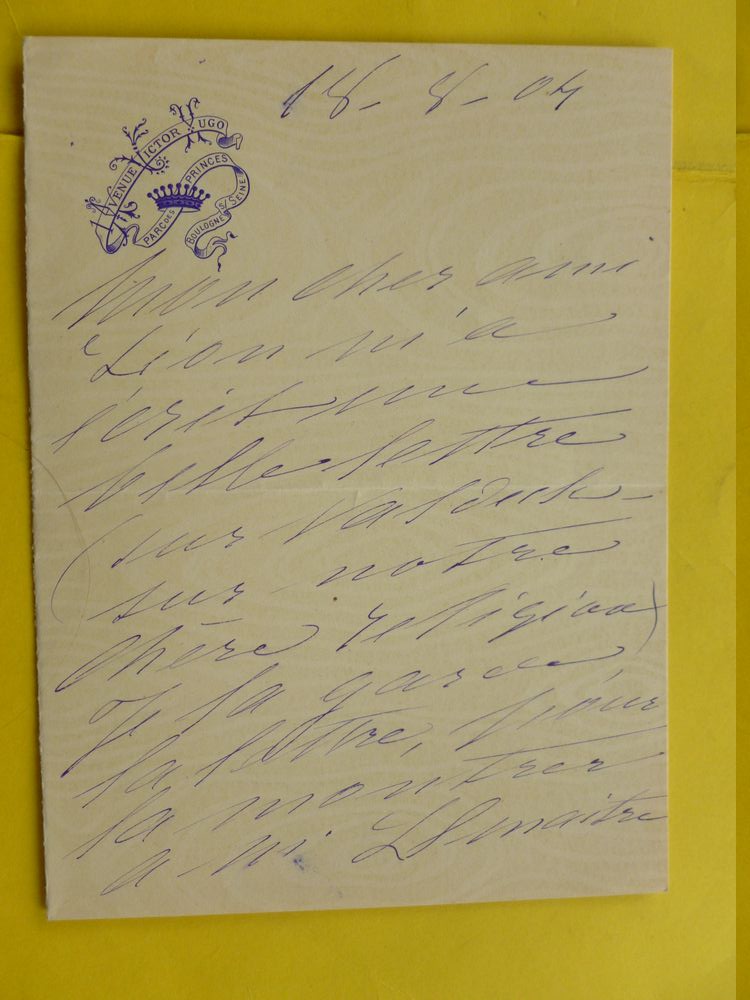 18-8-04
AVENUE VICTOR HUGO
PARC DES PRINCES
BOULOGNE S/ SEINE
Mon cher ami
Léon m'a
écrit une
belle lettre
(sur Valdeck-
sur notre
chère religion)
Je la garde,
la lettre, pour
la montrer
a Mr Lemaitre